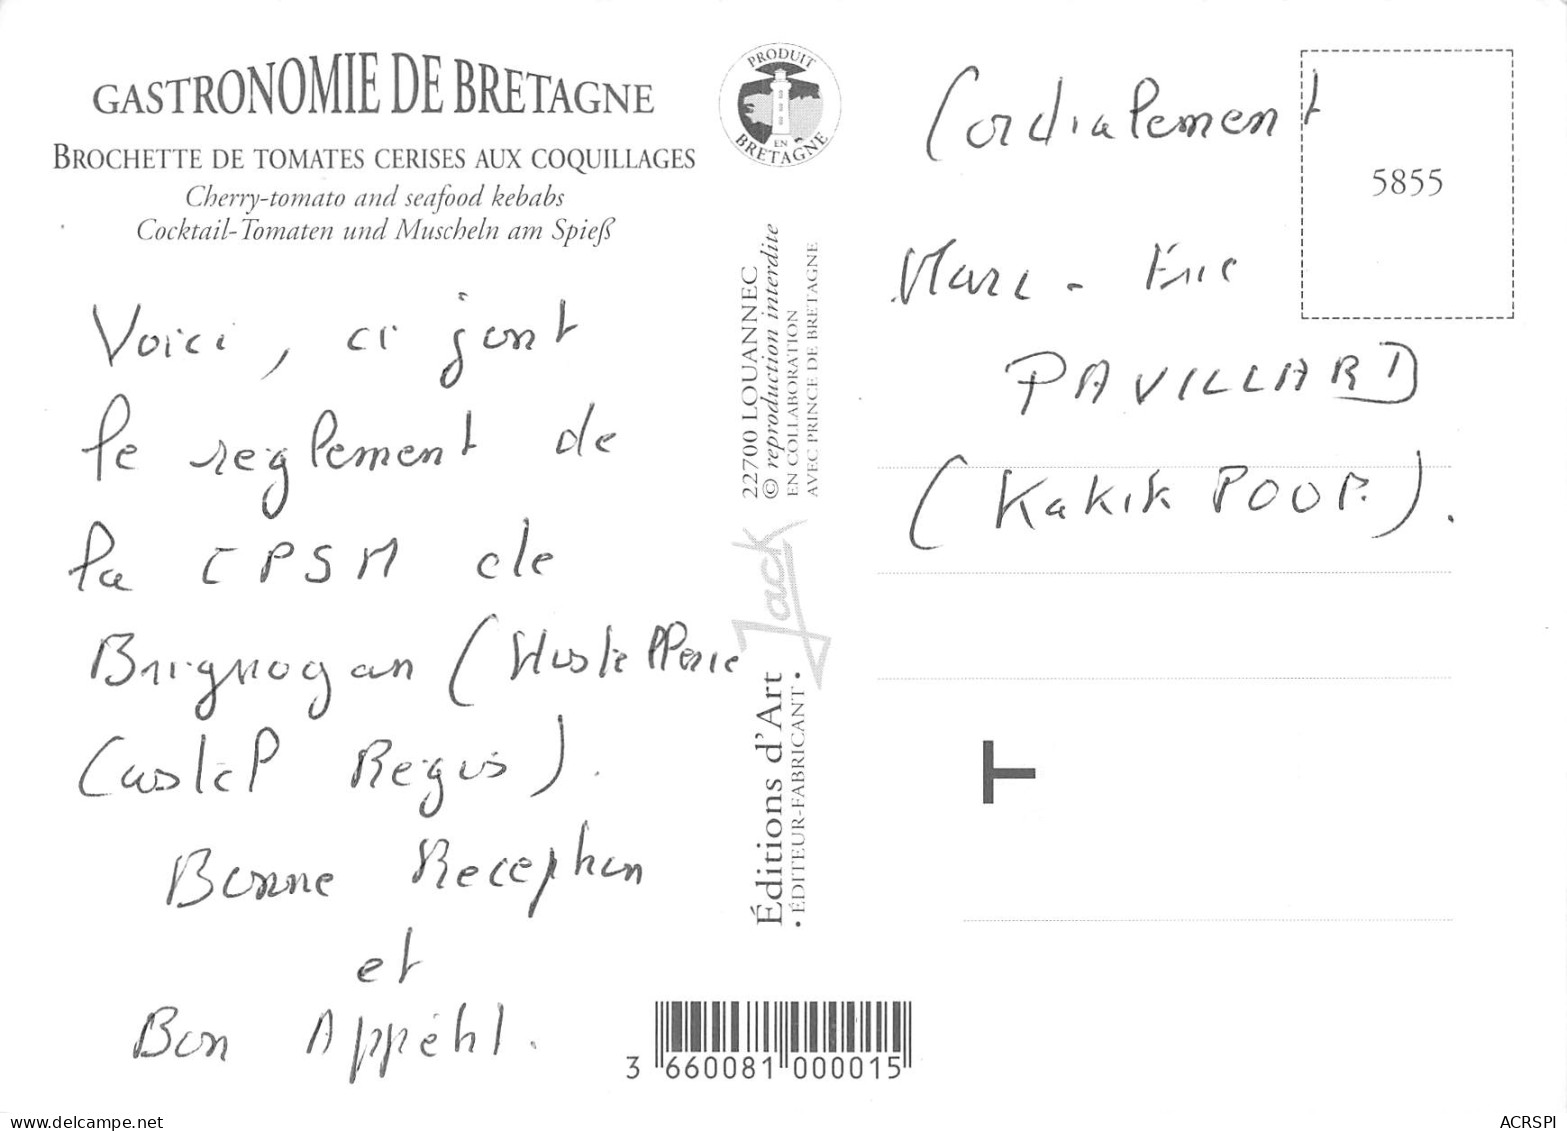 GASTRONOMIE DE BRETAGNE
BROCHETTE DE TOMATES CERISES AUX COQUILLAGES
Cherry-tomato and seafood kebabs
Cocktail-Tomaten und Muscheln am Spieß
Voici, ci jont
le reglement de
la CPSM de
Brignogan (Hostellerie
Castel Regis).
Bonne Reception
et
Bon Appétit.
PRODUIT
EN
BRETAGNE
22700 LOUANNEC
© reproduction interdite
EN COLLABORATION
AVEC PRINCE DE BRETAGNE
Jack
Éditions d'Art
• ÉDITEUR-FABRICANT •
3 660081 000015
Cordialement
5855
Marc-Eric
PAVILLARD
(Kakik POOP.).
T
www.delcampe.net
ACRSPI